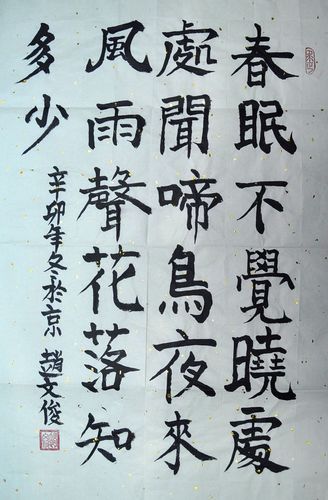 春眠不覺曉處
處聞啼鳥夜來
風雨聲花落知
多少
辛卯年冬於京 趙文俊